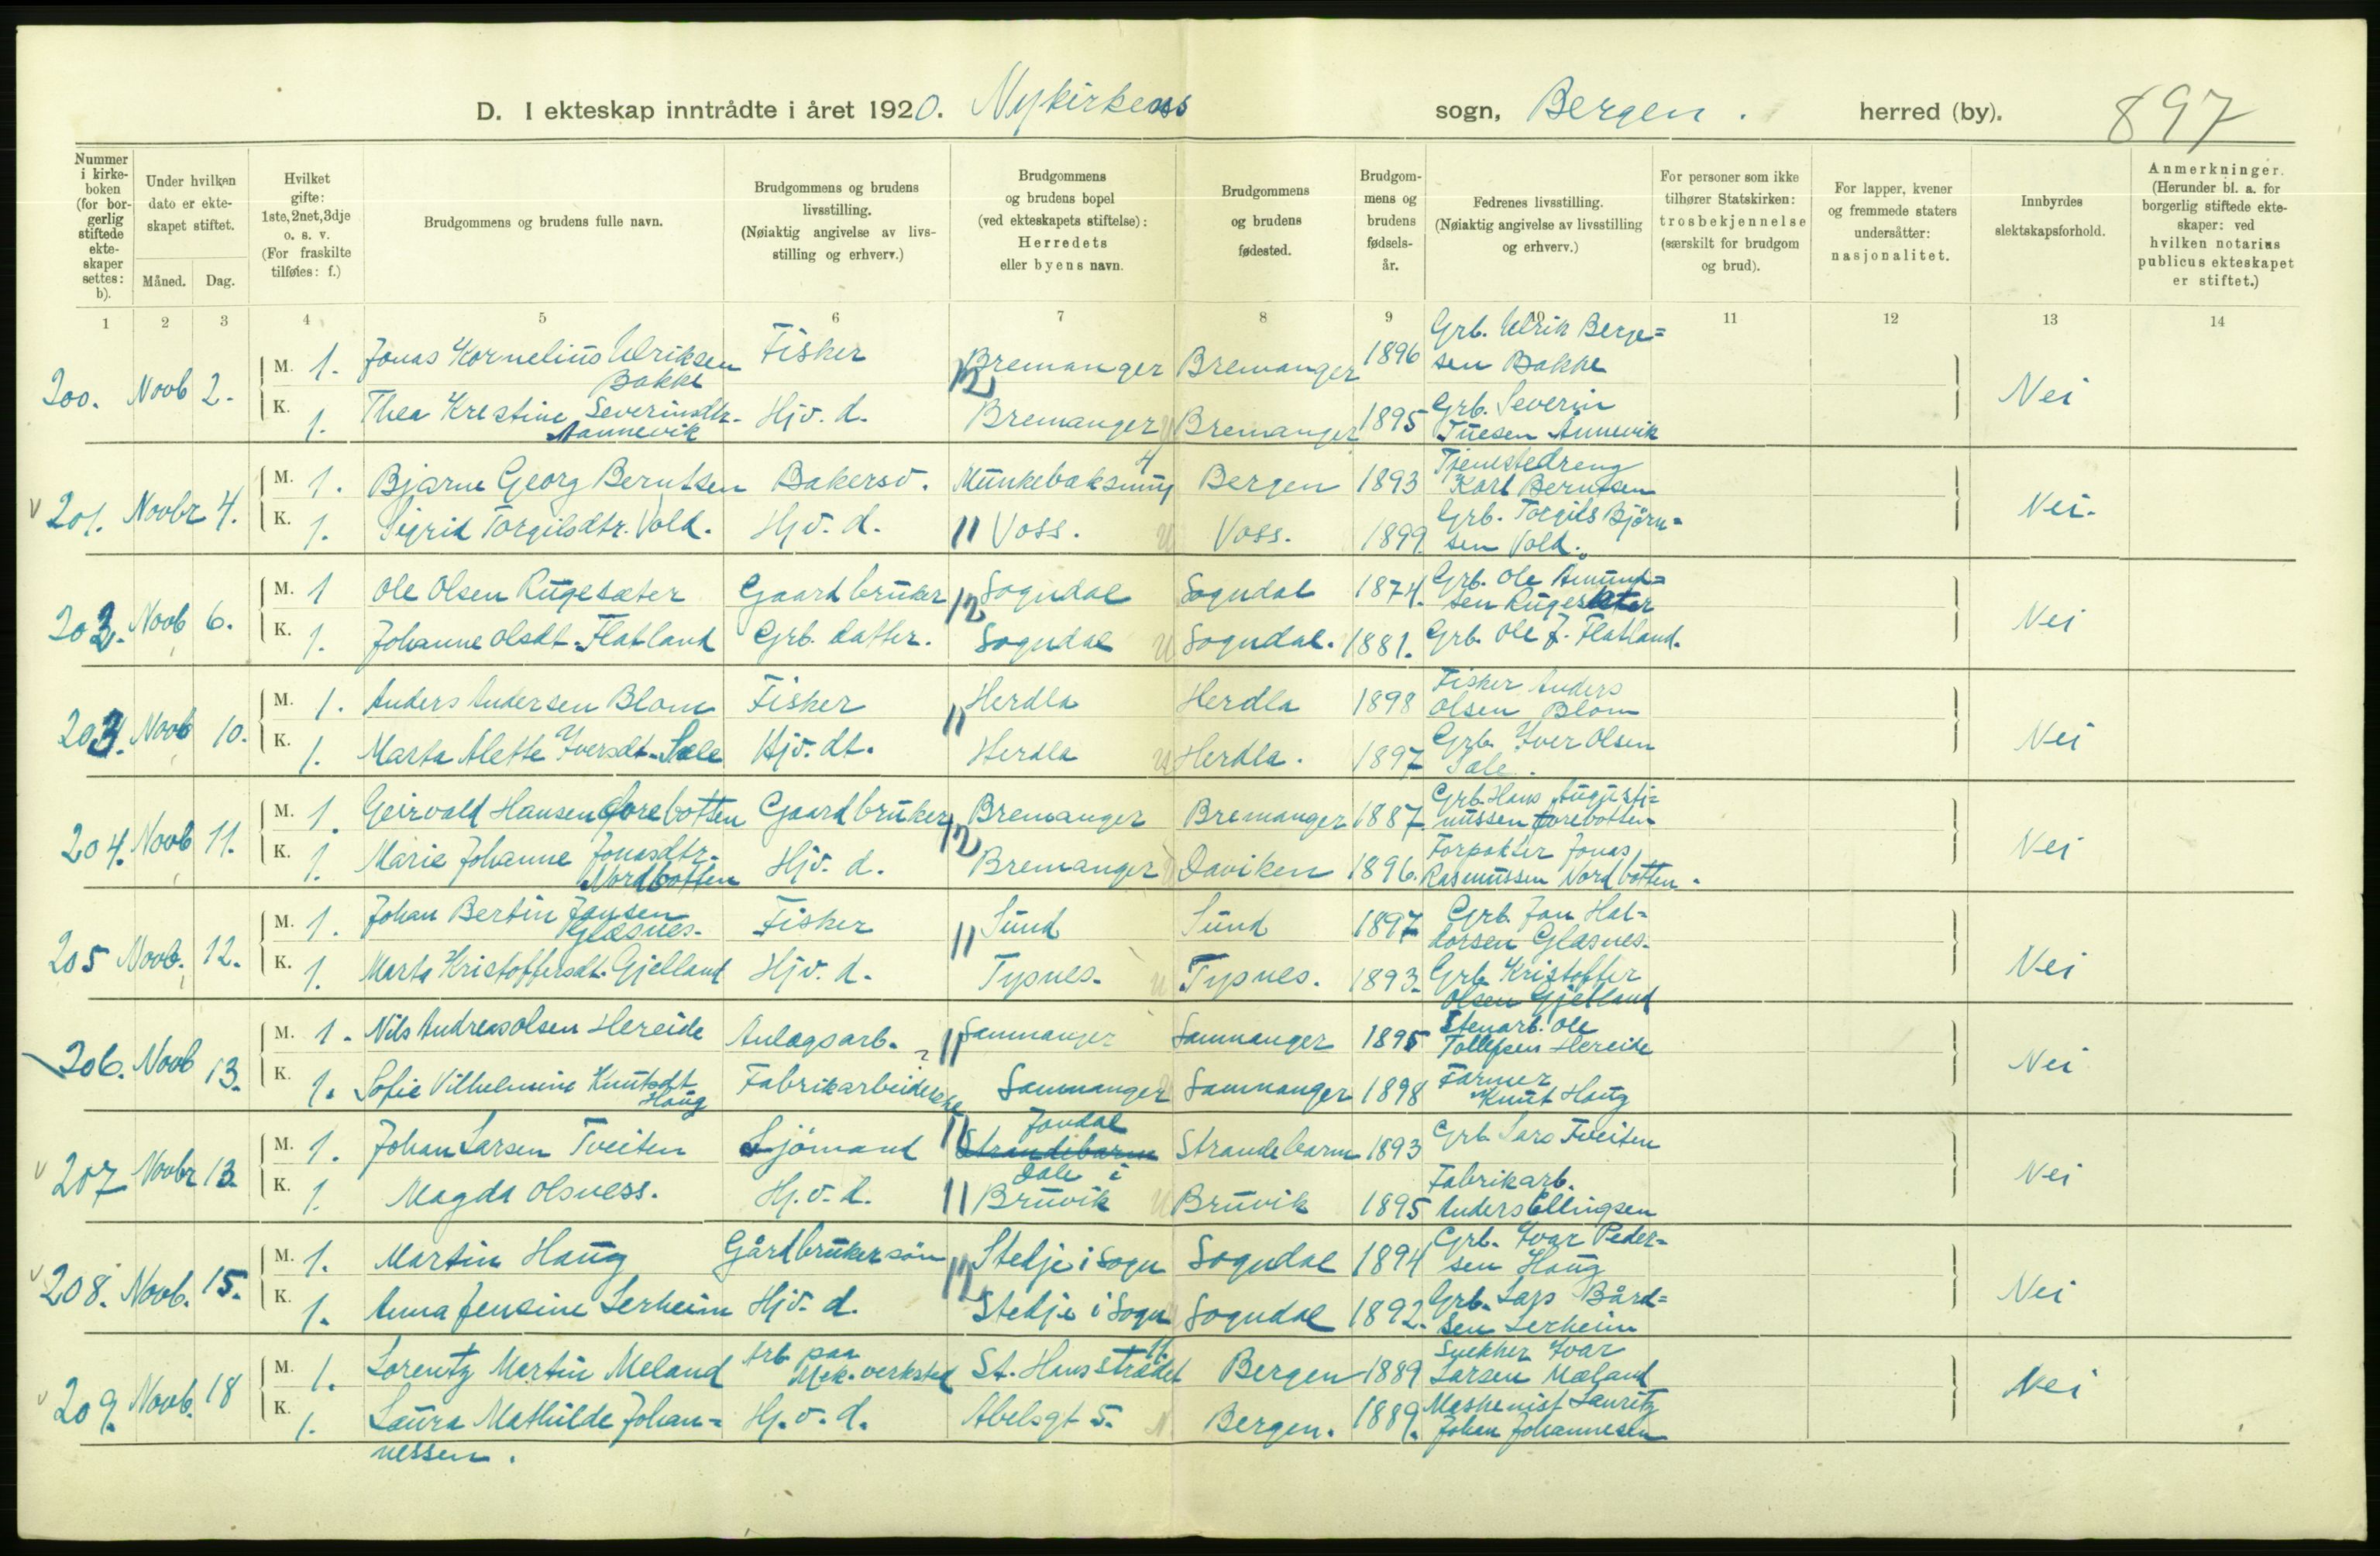 D. I ekteskap inntrådte i året 1920. Nykirkens sogn, Bergen. herred (by). 897
Nummer i kirkeboken (for borgerlig stiftede ekteskaper settes: b).
Under hvilken dato er ekteskapet stiftet. Måned. Dag.
Hvilket gifte: 1ste, 2net, 3dje o. s. v. (For fraskilte tilføies: f.)
Brudgommens og brudens fulle navn.
Brudgommens og brudens livsstilling. (Nøiaktig angivelse av livsstilling og erhverv.)
Brudgommens og brudens bopel (ved ekteskapets stiftelse): Herredets eller byens navn.
Brudgommens og brudens fødested.
Brudgommens og brudens fødselsår.
Fedrenes livsstilling. (Nøiaktig angivelse av livsstilling og erhverv.)
For personer som ikke tilhører Statskirken: trosbekjennelse (særskilt for brudgom og brud).
For lapper, kvener og fremmede staters undersåtter: nasjonalitet.
Innbyrdes slektskapsforhold.
Anmerkninger. (Herunder bl. a. for borgerlig stiftede ekteskaper: ved hvilken notarius publicus ekteskapet er stiftet.)
1 2 3 4 5 6 7 8 9 10 11 12 13 14
200. Novb 2. M. 1. Jonas Kornelius Ulriksen Bakke Fisker Bremanger Bremanger 1896 Grb. Ulrik Berge=sen Bakke Nei
12
K. 1. Thea Kristine Severinsdtr. Aannevik Hjv. d. Bremanger Bremanger 1895 Grb. Severin Tuesen Annevik
201. Novbr 4. M. 1. Bjarne Georg Berntsen Bakersv. Munkebaksmug 4 Bergen 1893 Tjenestedreng Karl Berntsen Nei.
K. 1. Sigrid Torgilsdtr. Vold. Hjv. d. 11 Voss. Voss. 1899. Grb. Torgils Bjørn=sen Vold.
202. Novb 6. M. 1 Ole Olsen Rugesæter Gaardbruker Sogndal Sogndal 1874. Grb. Ole Amund=sen Rugesæter Nei
12
K. 1. Johanne Olsdt. Flatland Grb. datter. Sogndal Sogndal. 1881. Grb. Ole J. Flatland.
203. Novb 10. M. 1. Anders Andersen Blom Fisker Herdla Herdla 1898 Fisker Anders Olsen Blom Nei
11
K. 1. Marta Alette Iversdt. Sæle Hjv. dt. Herdla Herdla. 1897 Grb. Iver Olsen Sæle.
204. Novb 11. M. 1. Geirvald Hansen Förebotten Gaardbruker Bremanger Bremanger 1887 Grb. Hans Augusti=nussen Förebotten Nei
12
K. 1. Marie Johanne Jonasdtr. Nordbotten Hjv. d. Bremanger Daviken 1896. Forpakter Jonas Rasmussen Nordbotten.
205 Novb. 12. M. 1. Johan Bertin Jansen Glæsnes. Fisker Sund Sund 1897 Grb. Jan Hal=dorsen Glæsnes. Nei
11
K. 1. Marta Kristoffersdt. Gjelland Hjv. d. Tysnes. Tysnes. 1893. Grb. Kristoffer Olsen Gjelland
206. Novb 13. M. 1. Nils Andreas Olsen Hereide Anlagsarb. ? 11 Samnanger Samnanger 1895 Stenarb. Ole Tollefsen Hereide Nei
K. 1. Sofie Vilhelmine Knutsdt Haug Fabrikarbeiderske Samnanger Samnanger 1898 Farmer Knut Haug
207 Novbr 13. M. 1. Johan Larsen Tveiten Sjömand 11 Jondal Strandebarm Strandebarm 1893 Grb. Lars Tveiten Nei
K. 1. Magda Olsness. Hj.v. d. 11 Dale i Bruvik Bruvik 1895 Fabrikarb. Anders Ellingsen
208. Novb. 15. M. 1. Martin Haug Gårdbrukersön Stedje i Sogn Sogndal 1894 Grb. Ivar Peder=sen Haug Nei
12
K. 1. Anna Jensine Lerheim Hjv. d. Stedje i Sogn Sogndal 1892. Grb. Lars Bård=sen Lerheim
209. Novb. 18 M. 1. Lorentz Martin Meland Arb. paa Mek. verksted St. Hansstrædet 11. Bergen 1889 Snekker Ivar Larsen Mæland Nei
K. 1. Laura Mathilde Johan=nessen. Hj.v. d. Abelsgt 5. Bergen. 1889. Maskenist Lauritz Johan Johannesen